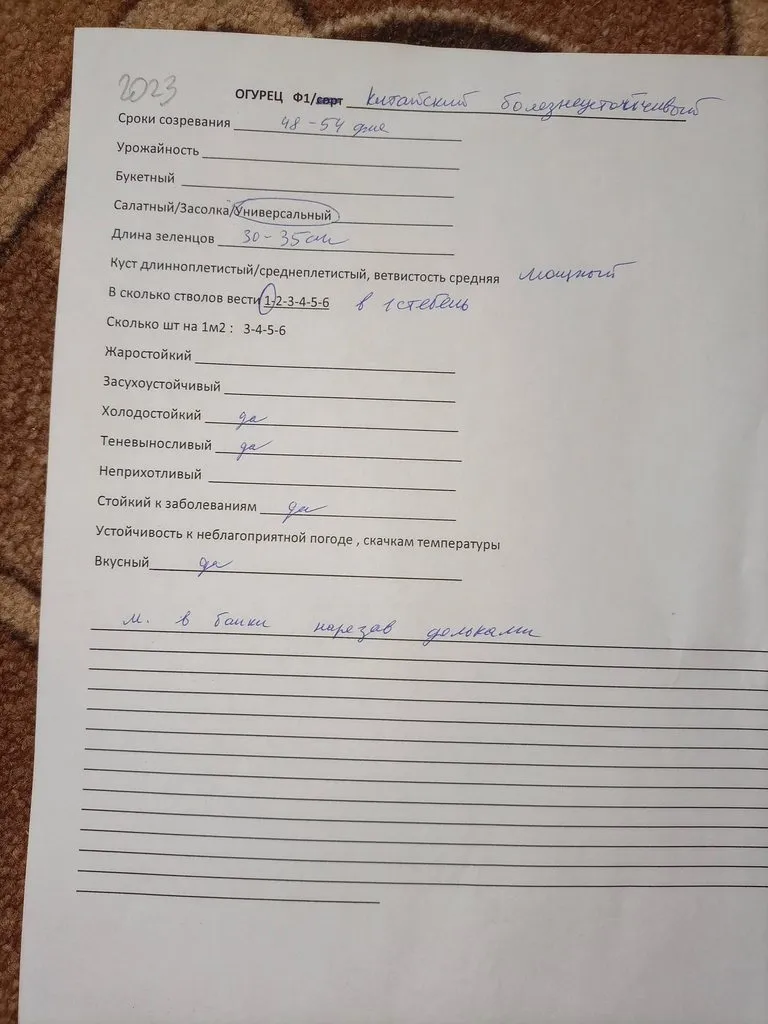 2023
ОГУРЕЦ Ф1/сорт Китайский болезнеустойчивый
Сроки созревания 48-54 дня
Урожайность
Букетный
Салатный/Засолка/Универсальный
Длина зеленцов 30-35см
Куст длинноплетистый/среднеплетистый, ветвистость средняя мощный
В сколько стволов вести 1-2-3-4-5-6 в 1 стебель
Сколько шт на 1м2 : 3-4-5-6
Жаростойкий
Засухоустойчивый
Холодостойкий да
Теневыносливый да
Неприхотливый
Стойкий к заболеваниям да
Устойчивость к неблагоприятной погоде , скачкам температуры
Вкусный да
м. в банки нарезав дольками